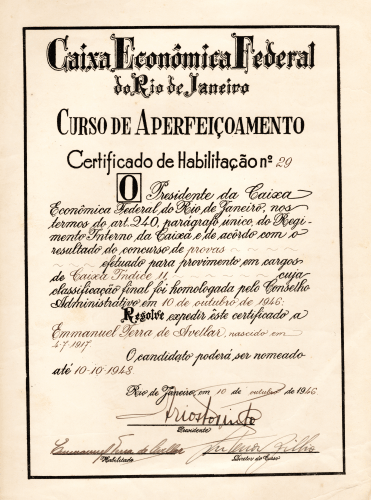 Caixa Econômica Federal
do Rio de Janeiro
CURSO DE APERFEIÇOAMENTO
Certificado de Habilitação nº 29
O Presidente da Caixa
Econômica Federal do Rio de Janeiro, nos
termos do art. 240, parágrafo único, do Regi-
mento Interno da Caixa e de acôrdo com o
resultado do concurso de provas
efetuado para provimento em cargos
de Caixa Indice U, cuja
classificação final foi homologada pelo Conselho
Administrativo em 10 de outubro de 1946:
Resolve expedir êste certificado a
Emmanuel Terra de Avellar, nascido em
4-7-1917
O candidato poderá ser nomeado
até 10-10-1948
Rio de Janeiro, em 10 de outubro de 1946
Presidente
Emmanuel Terra de Avellar
Habilitado
Diretor do Curso